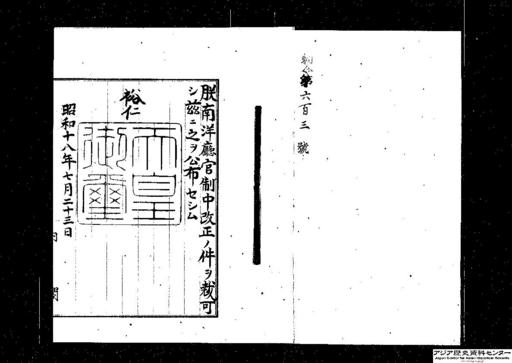 勅令第六百三號
朕南洋廳官制中改正ノ件ヲ裁可
シ茲ニ之ヲ公布セシム
裕仁
天皇
御璽
昭和十八年七月二十三日
アジア歴史資料センター
Japan Center for Asian Historical Records